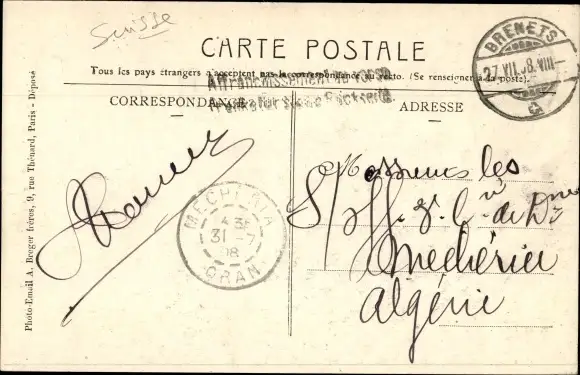 Suisse
CARTE POSTALE
Tous les pays étrangers n'acceptent pas la correspondance au recto. (Se renseigner à la poste).
Affranchissement au verso
Frankatur siehe Rückseite
CORRESPONDANCE
ADRESSE
BRENETS
27.VII.08.VIII
MECHERIA
31-7
08
ORAN
Messieurs les
S/Off.
de D
Mechéria
Algérie
Photo-Email A. Breger frères, 9, rue Thénard, Paris - Déposé